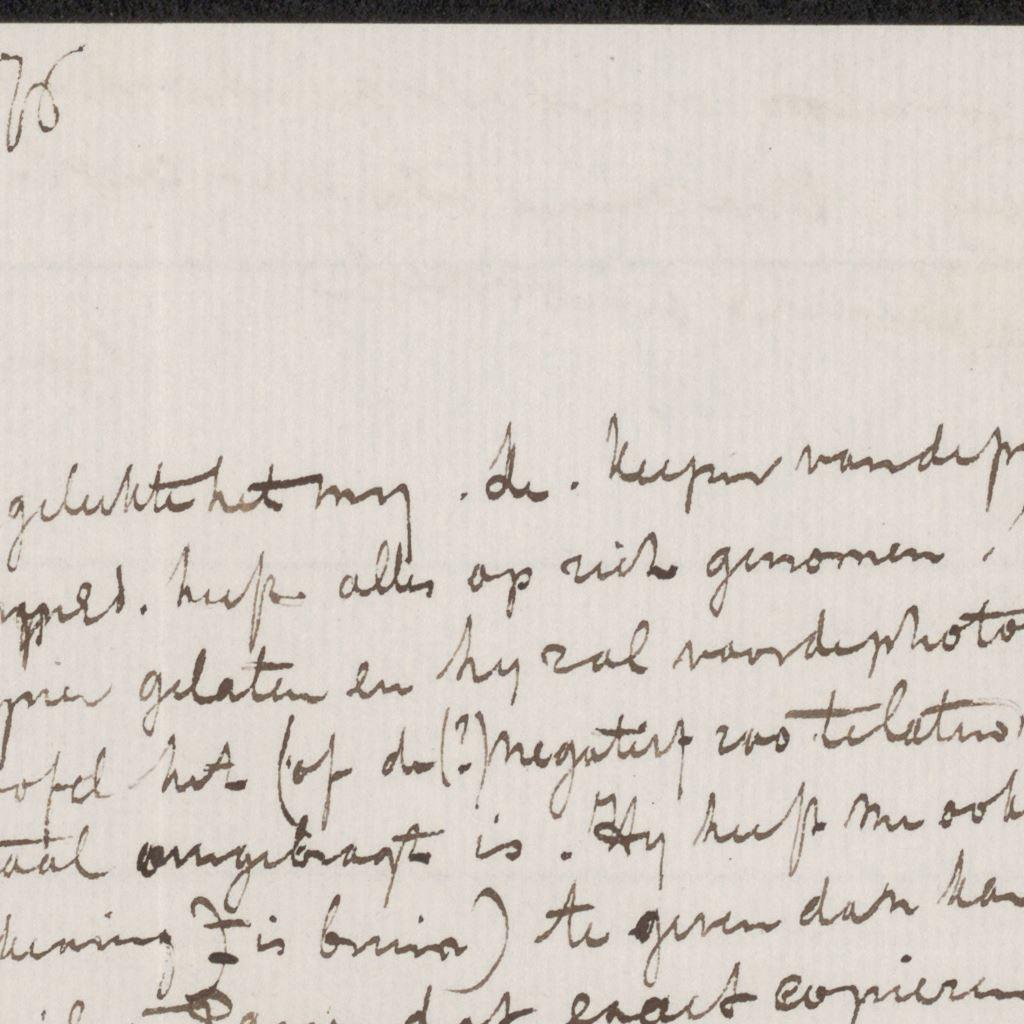 76
gelukte het my. de. keeper van de p
heeft alles op zich genomen.
gelaten en hy zal van de photo
het (of de (?) negatief zoo te laten
taal omgebragt is. Hy heeft me ook
is bruin) te geven dan kan
dat exact copieren